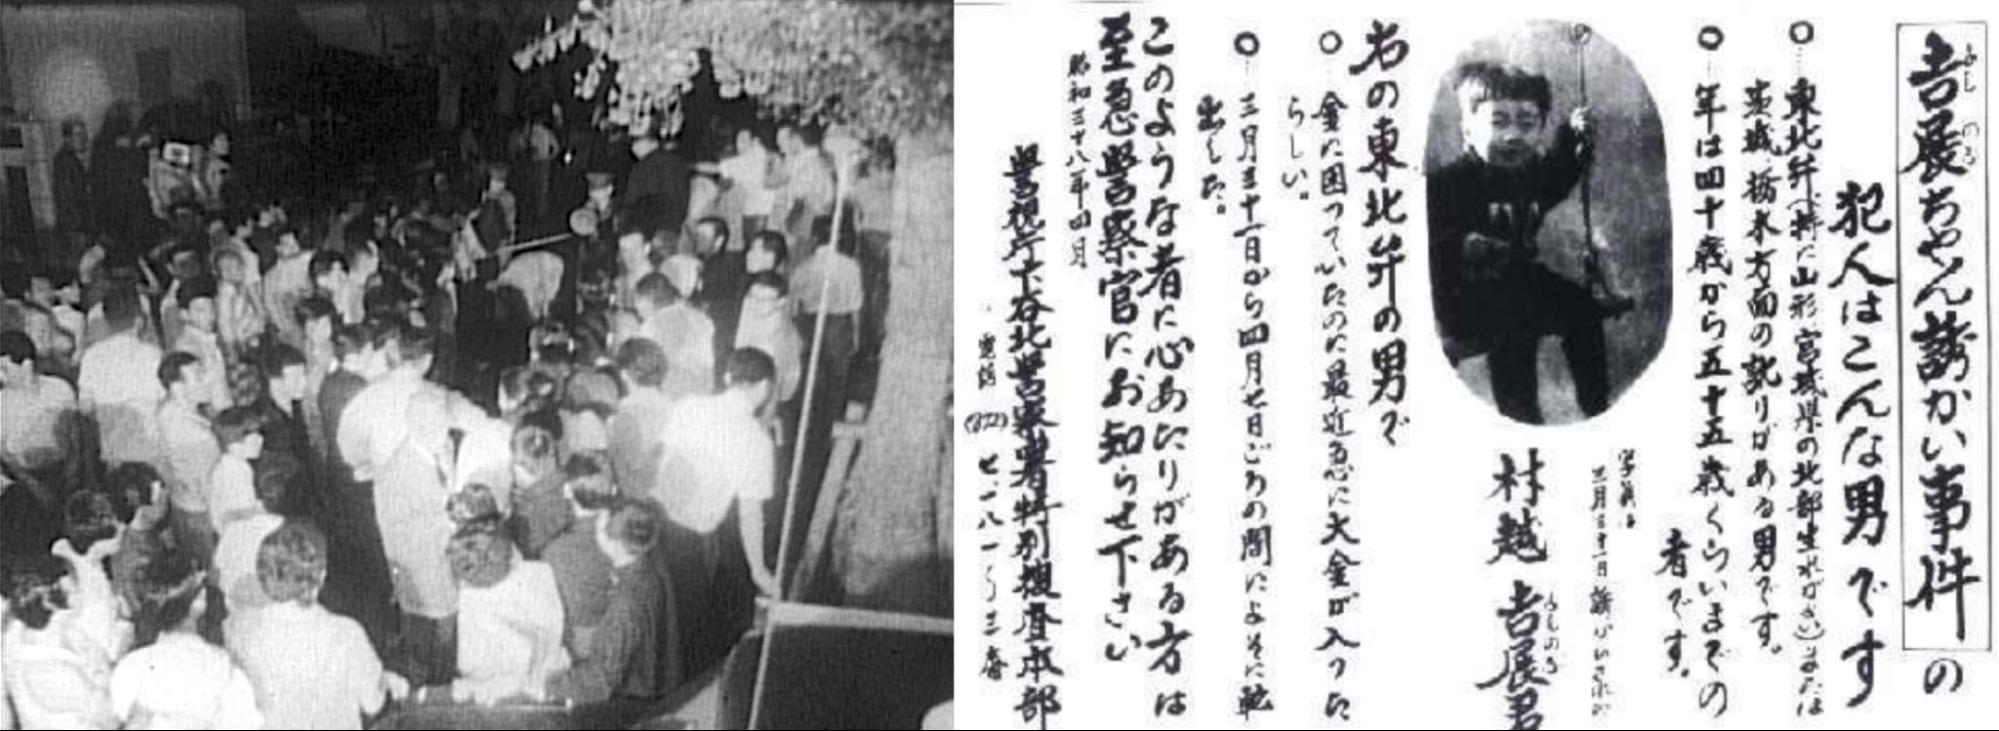 吉展ちゃん誘かい事件の
よし のぶ
犯人はこんな男です
東北弁(特に山形、宮城県の北部生れがさい)または
茨城、栃木方面の訛りがある男です。
年は四十歳から五十五歳くらいまでの
者です。
三月三十一日誘かいされた
村越 吉展君
右の東北弁の男で
金に困っていたのに最近急に大金が入った
らしい。
三月三十一日から四月七日ごろの間によそに
出した。
このような者に心あたりがある方は
至急警察官にお知らせ下さい
昭和三十八年四月
警視庁下谷北警察署特別捜査本部
電話 (872) 七一八一～三番